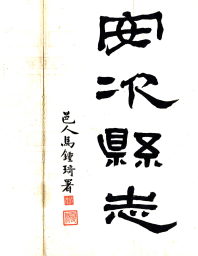 安次縣志
邑人馬鍾琦署